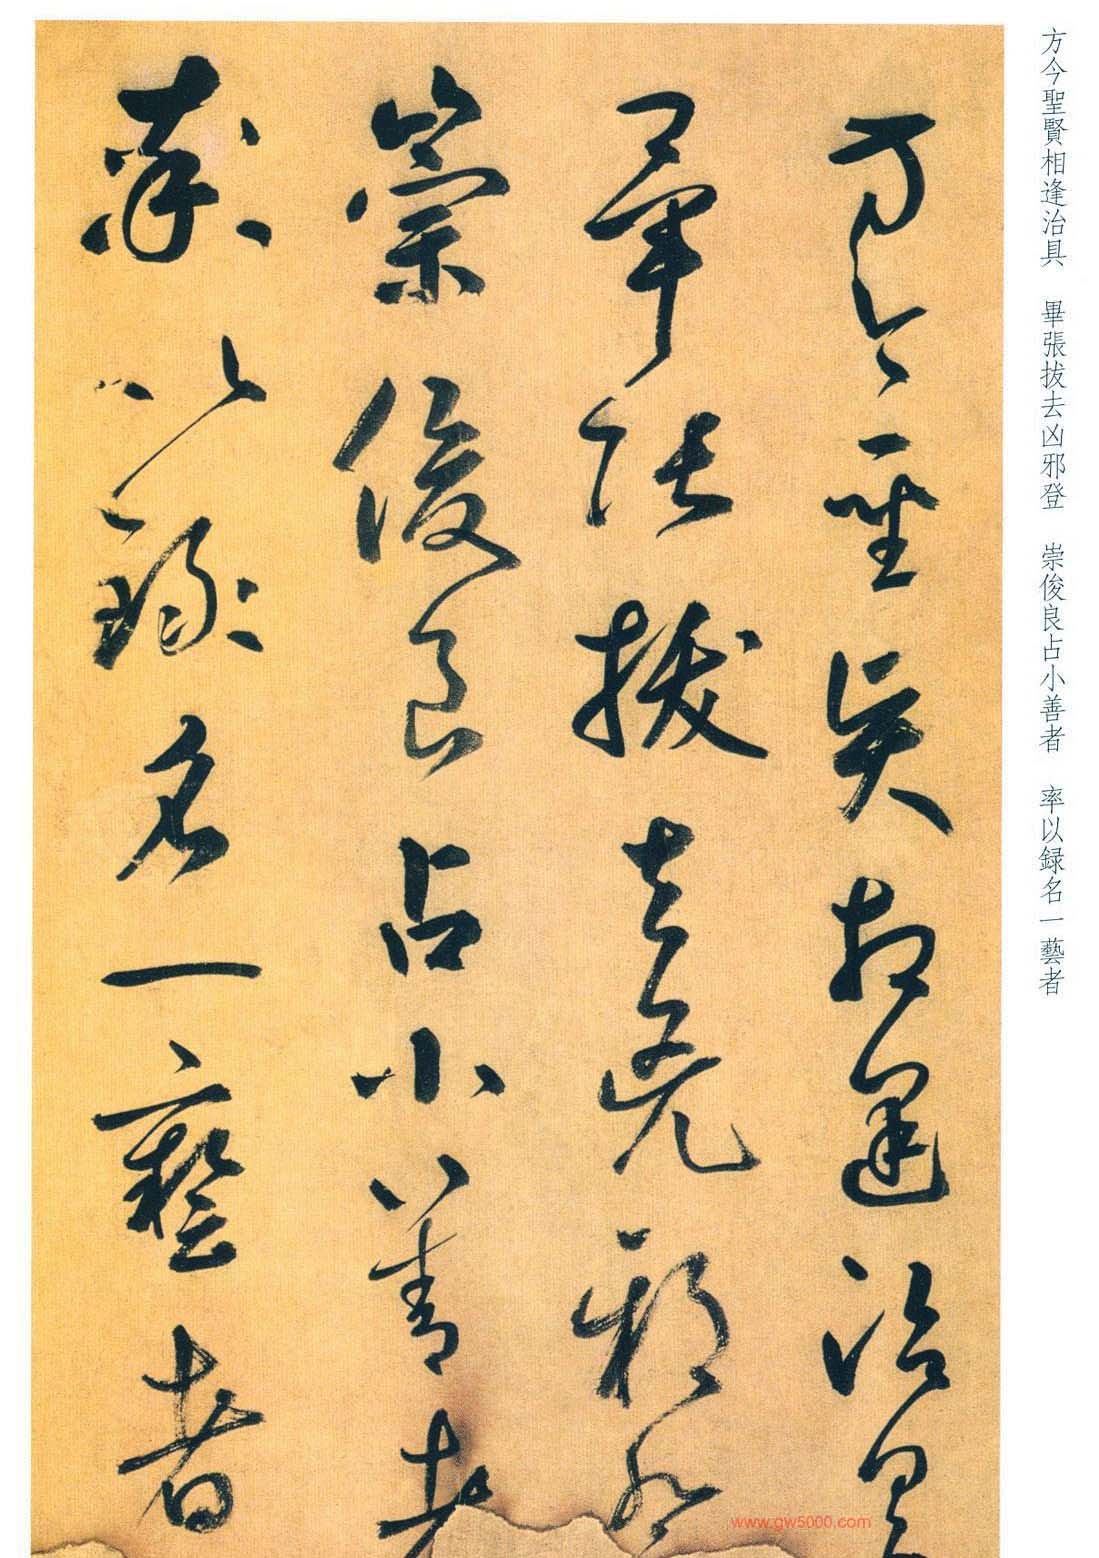 方今聖賢相逢治具 畢張拔去凶邪登 崇俊良占小善者 率以録名一藝者
方今聖賢相逢治具
畢張拔去兇邪登
崇俊良占小善者
率以録名一藝者
www.gw5000.com